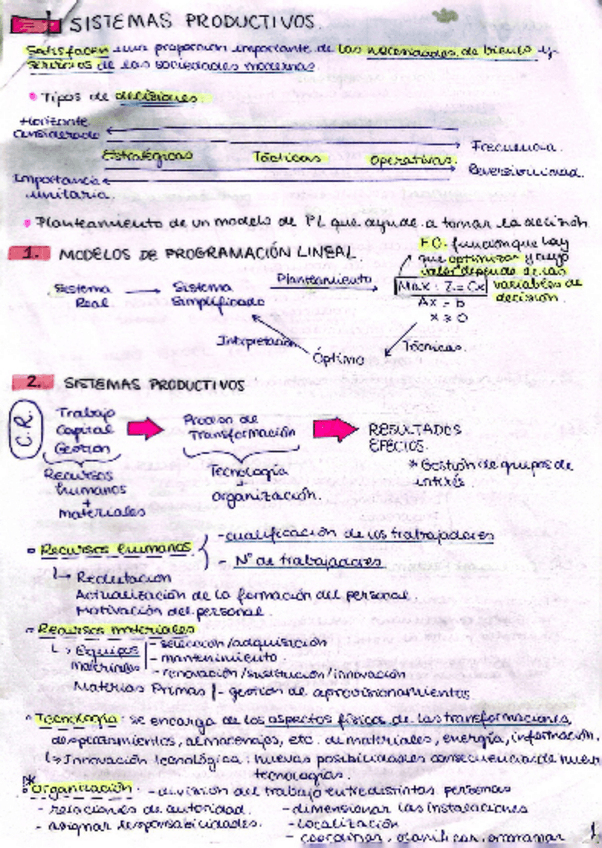 SISTEMAS PRODUCTIVOS.
Satisfacen una proporción importante de las necesidades de bienes y
servicios de las sociedades modernas.
• Tipos de decisiones:
Horizonte
considerado
Frecuencia.
Estratégicas Tácticas Operativas.
Reversibilidad.
Importancia
unitaria.
• Planteamiento de un modelo de PL que ayude a tomar la decisión
F.O. función que hay
1. MODELOS DE PROGRAMACIÓN LINEAL.
que optimizar y cuyo
valor depende de las
variables de
decisión.
Planteamiento
Sistema Real
Sistema Simplificado
Max: Z = Cx
Ax = b
x ≥ 0
Interpretación
Óptimo
Técnicas.
2. SISTEMAS PRODUCTIVOS
C.R.
Trabajo
Capital
Gestión
Proceso de
Transformación
RESULTADOS
EFECTOS.
* Gestión de grupos de
interés.
Recursos
humanos
+
materiales
Tecnología
+
organización.
• Recursos humanos
- cualificación de los trabajadores
- Nº de trabajadores
↳ Reclutación
Actualización de la formación del personal.
Motivación del personal.
• Recursos materiales
↳ Equipos
materiales
- selección/adquisición
- mantenimiento
- renovación/sustitución/innovación
Materias Primas - gestión de aprovisionamientos
• Tecnología: se encarga de los aspectos físicos de las transformaciones,
desplazamientos, almacenajes, etc. de materiales, energía, información.
↳ Innovación tecnológica: nuevas posibilidades consecuencias de nuevas
tecnologías.
* Organización: - división del trabajo entre distintas personas
- relaciones de autoridad. - dimensionar las instalaciones
- asignar responsabilidades. - localización
- coordinar, planificar, programar
1